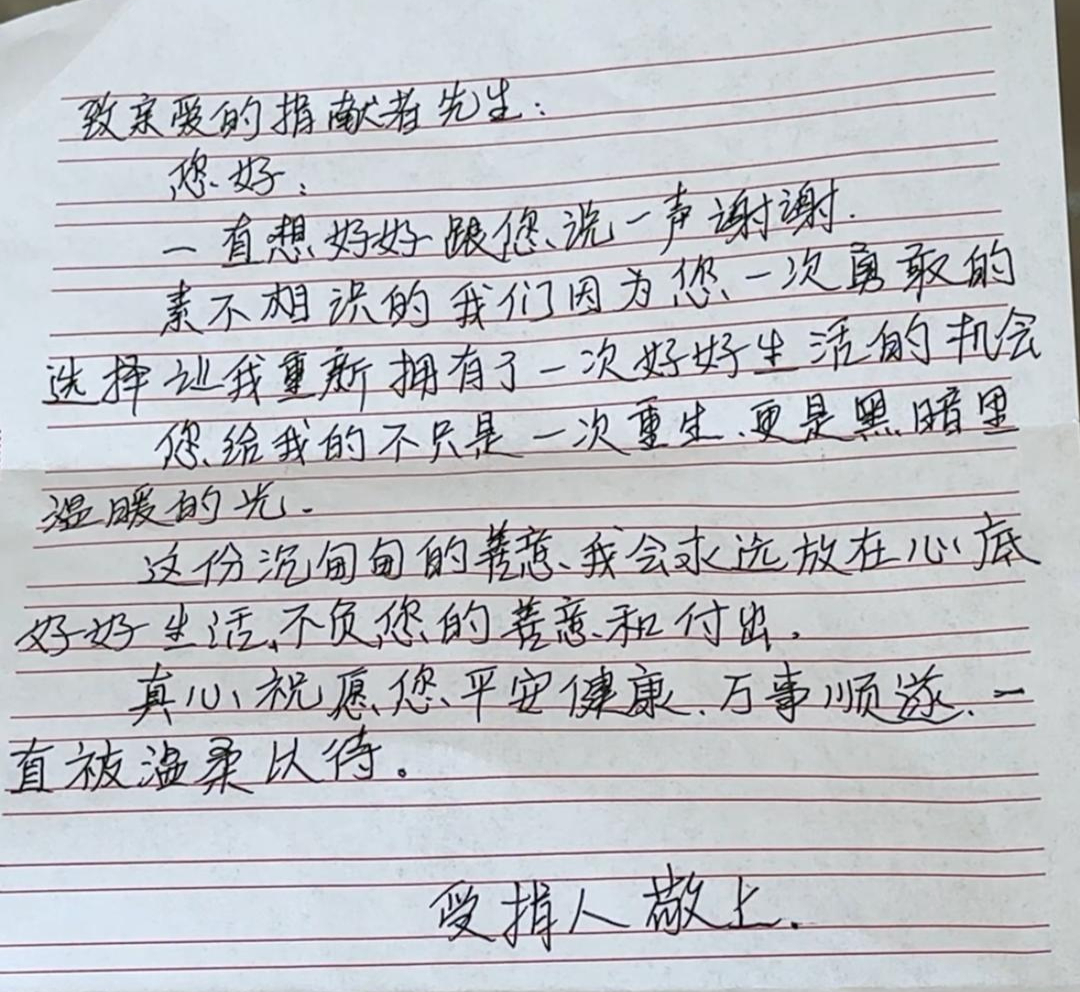 致亲爱的捐献者先生：
您好：
一直想好好跟您说一声谢谢.
素不相识的我们因为您一次勇敢的
选择让我重新拥有了一次好好生活的机会
您给我的不只是一次重生、更是黑暗里
温暖的光.
这份沉甸甸的善意、我会永远放在心底
好好生活,不负您的善意和付出.
真心祝愿您平安健康、万事顺遂、一
直被温柔以待。
受捐人敬上.